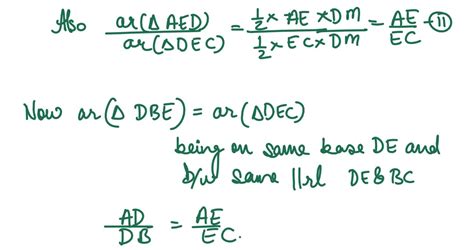 Also ar(Δ AED) / ar(ΔDEC) = ½ × AE × DM / ½ × EC × DM = AE / EC -⑪
Now ar(Δ DBE) = ar(ΔDEC)
being on same base DE and
b/w same ||rl DE & BC
AD / DB = AE / EC.